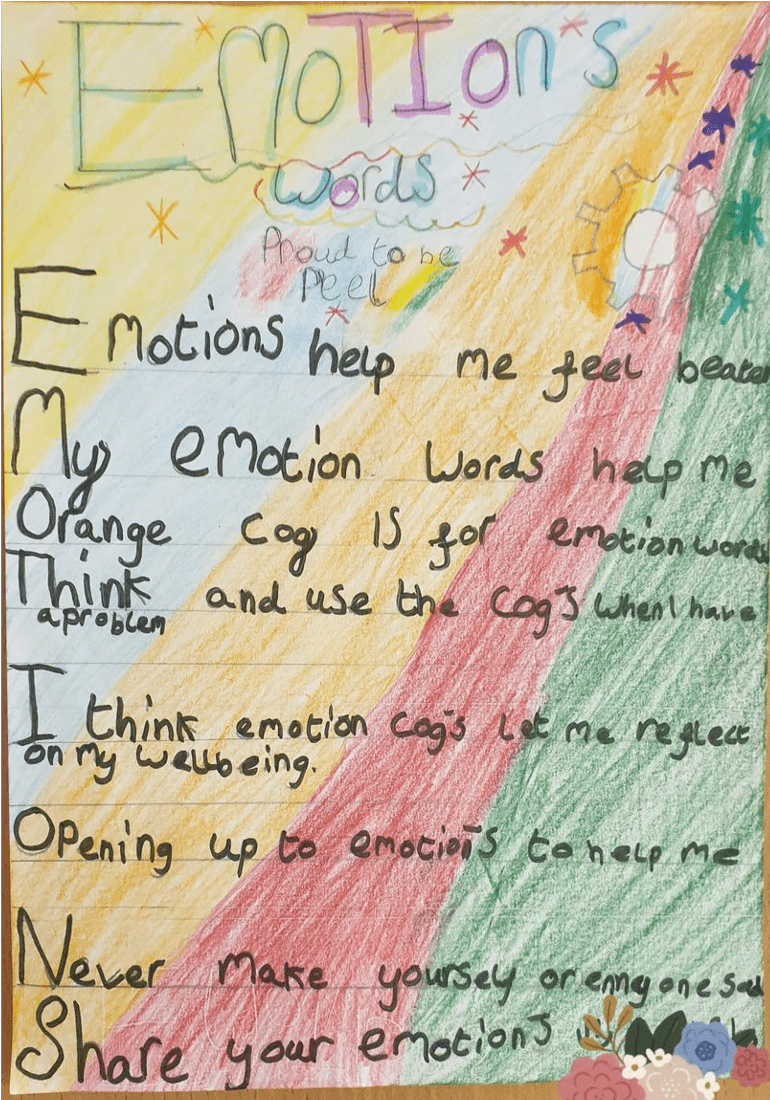 EMOTIONS
Words
Proud to be
Peel
Emotions help me feel beater
My emotion words help me
Orange cog is for emotion words
Think and use the cog's when I have
a problem
I think emotion cog's let me reflect
on my wellbeing.
Opening up to emotions to help me
Never make yoursely or enny one sad
Share your emotions